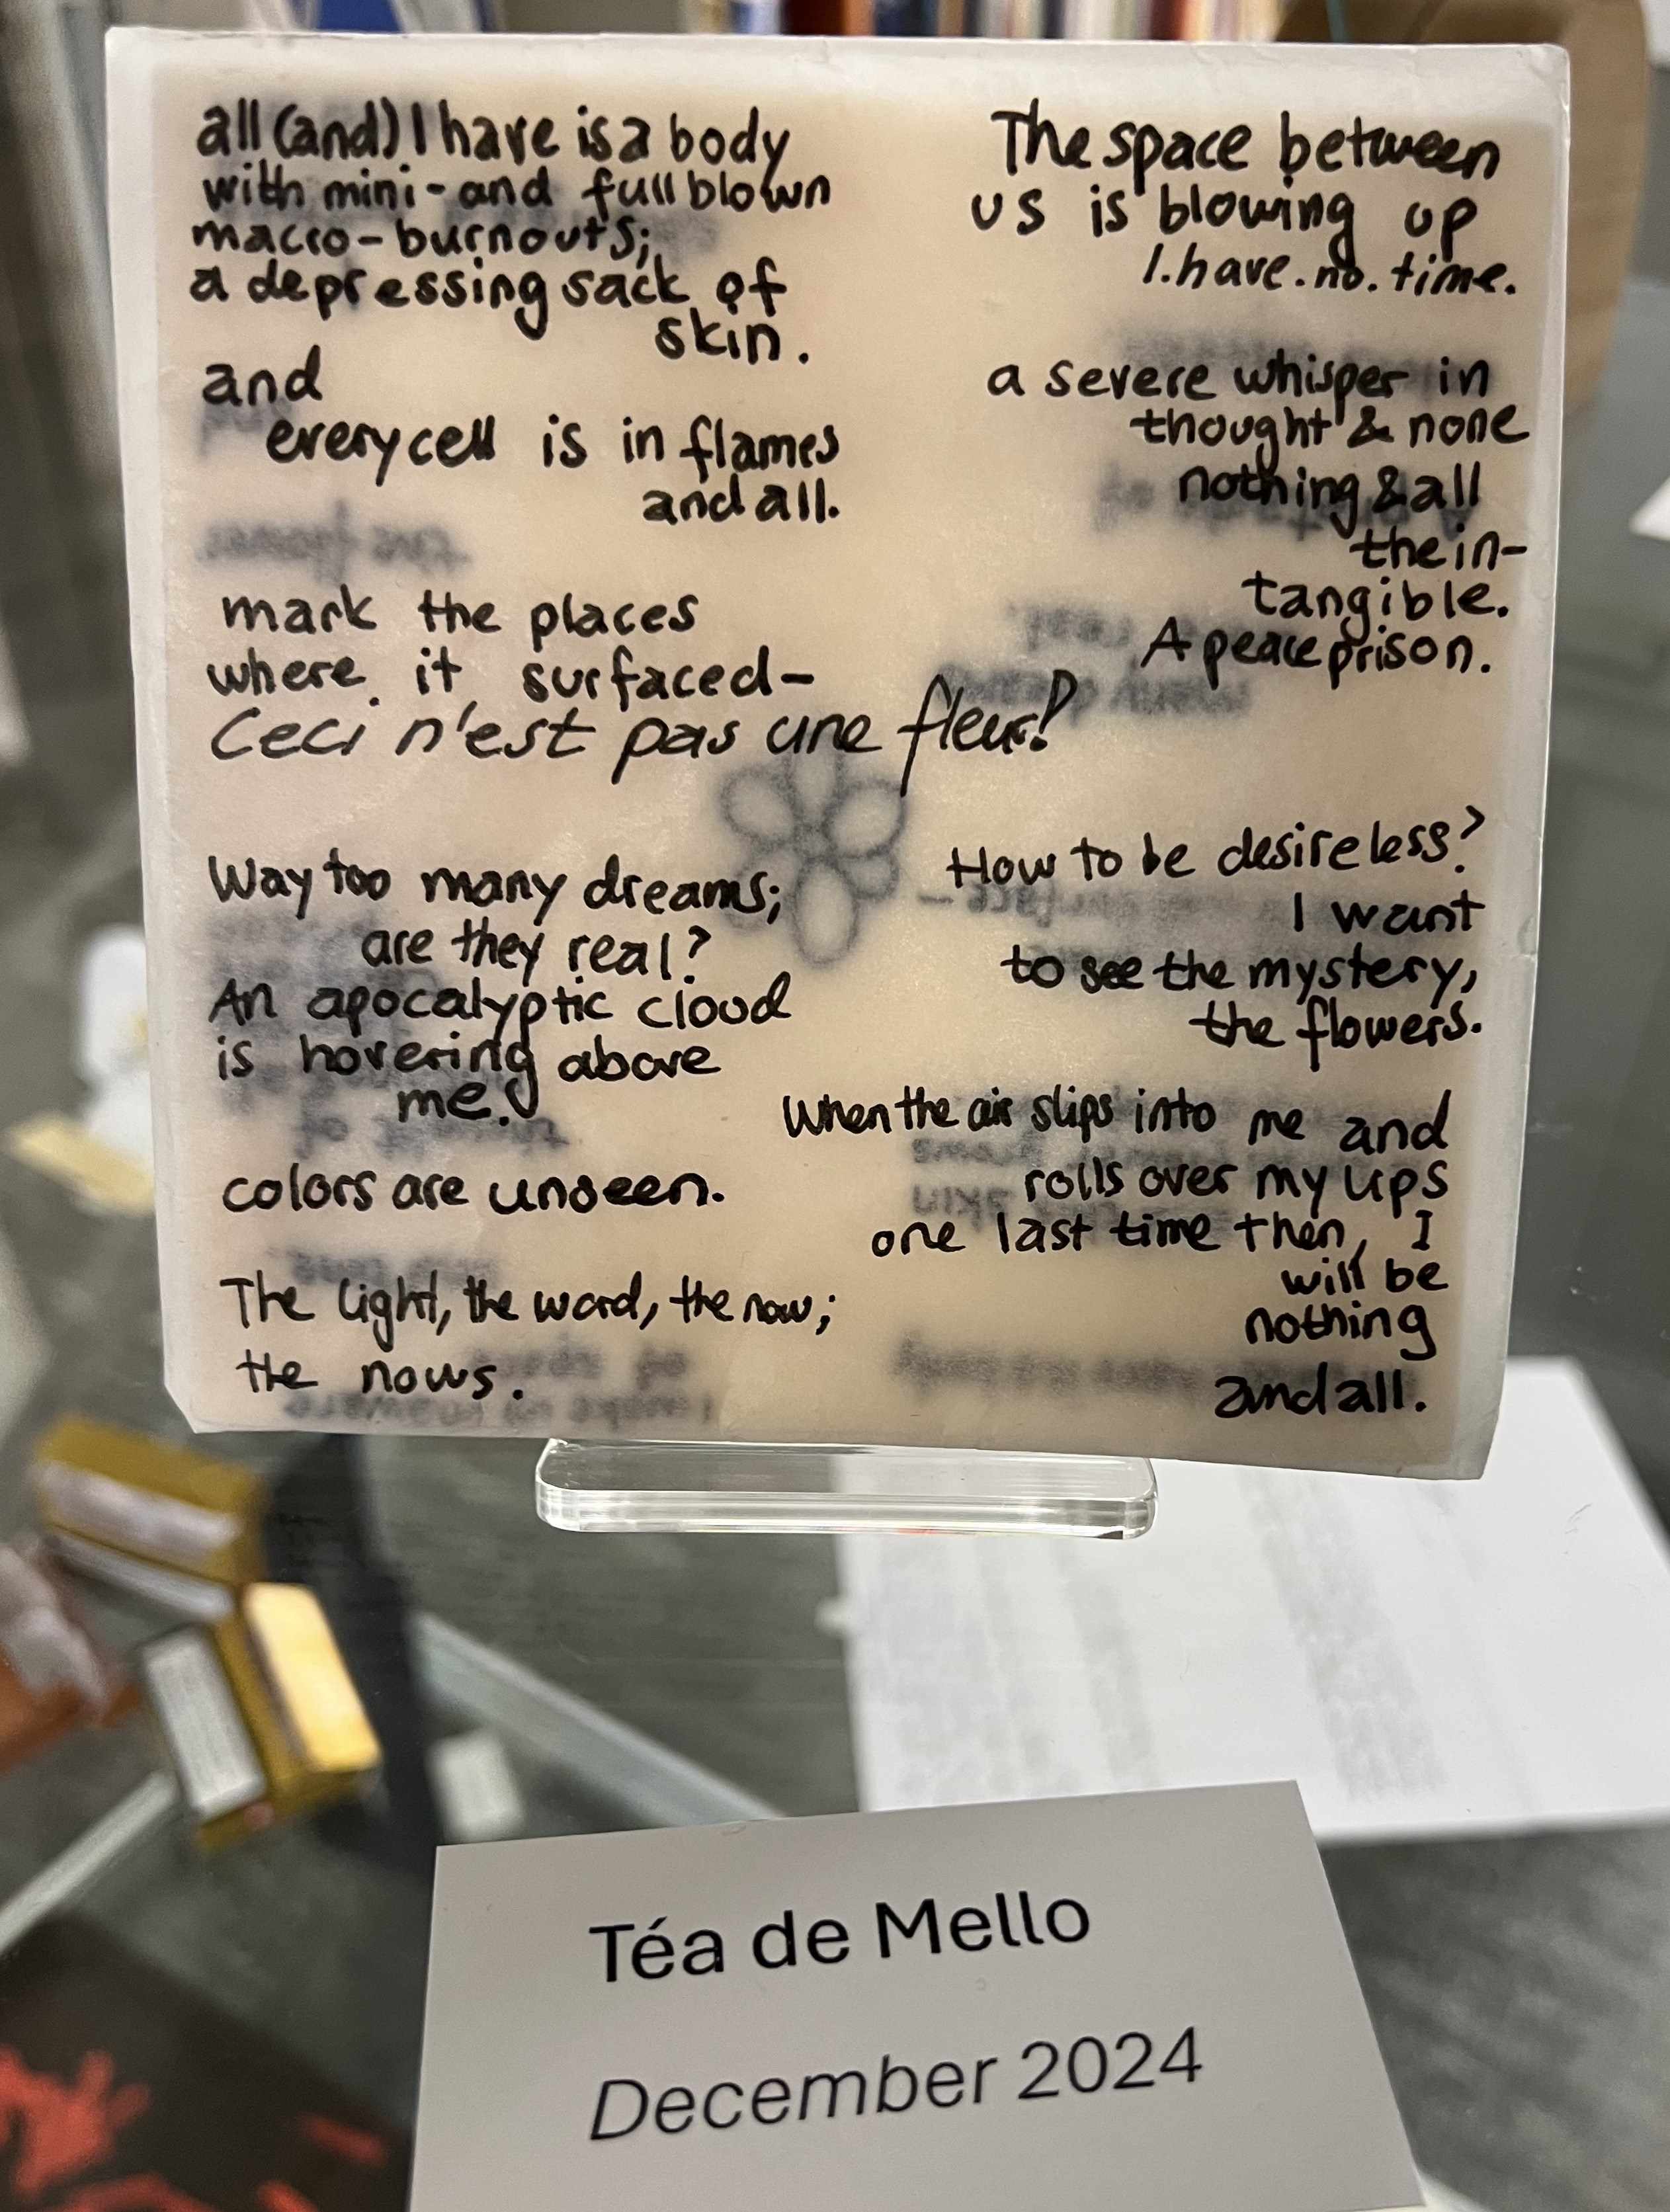 all (and) I have is a body
with mini-and full blown
macro-burnouts;
a depressing sack of
skin.
and
every cell is in flames
and all.
mark the places
where it surfaced-
Ceci n'est pas une fleur!
Way too many dreams;
are they real?
An apocalyptic cloud
is hovering above
me.
colors are unseen.
The light, the word, the now;
the nows.
The space between
us is blowing up
I.have.no.time.
a severe whisper in
thought & none
nothing & all
the in-
tangible.
A peace prison.
How to be desireless?
I want
to see the mystery,
the flowers.
When the air slips into me and
rolls over my lips
one last time then, I
will be
nothing
and all.
Téa de Mello
December 2024